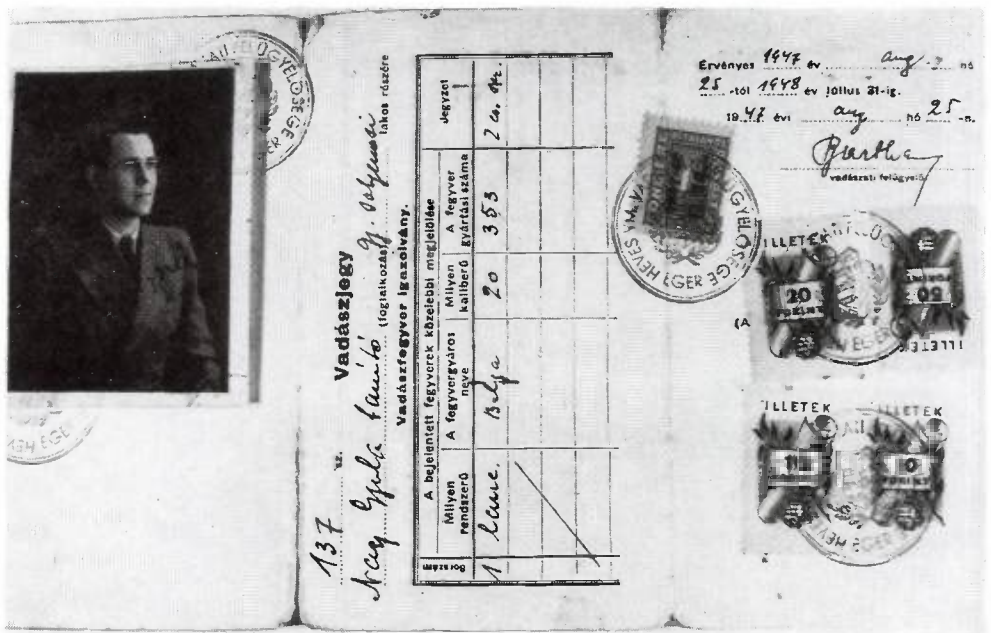 FELÜGYELŐSÉGE
EGER
137 sz. Vadászjegy
Nagy Gyula tanító (foglalkozás) gy. lakos részére
Vadászfegyver igazolvány.
A bejelentett fegyverek közelebbi megjelölése
Sorszám Milyen rendszerű A fegyvergyáros neve Milyen kaliberű A fegyver gyártási száma Jegyzet
1 Belga 20 353 2 cs.
Érvényes 1947 év aug. hó
25 -tól 1948 év július 31-ig.
1947 évi aug hó 25 -n.
Bartha
vadászati felügyelő
HEVES VM. EGER
(A
ILLETÉK ILLETÉK
20 FORINT
ILLETÉK ILLETÉK
HEVES EGER